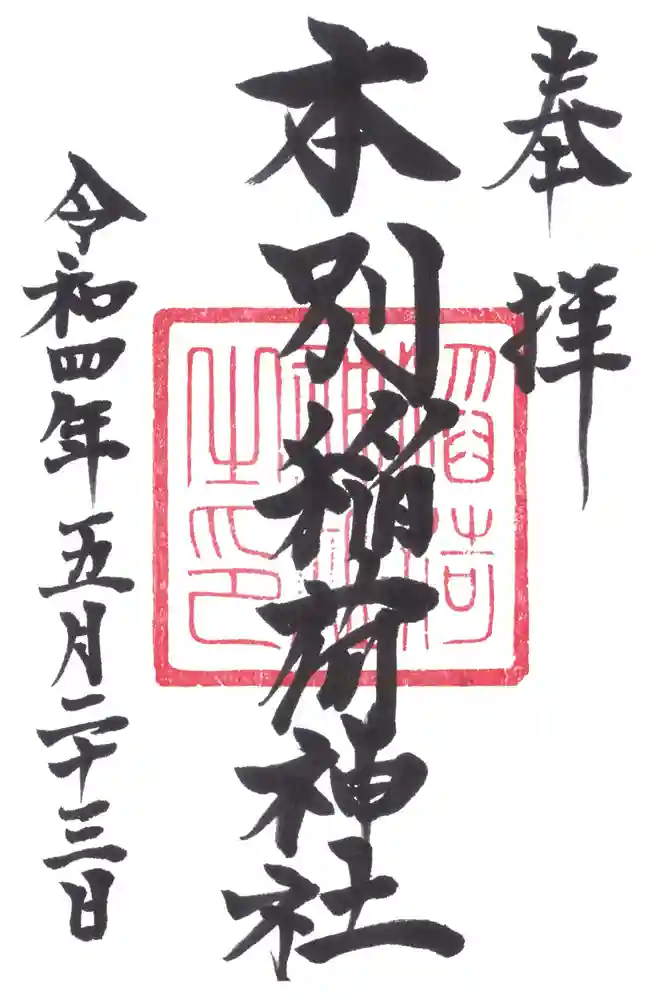 奉拝
本別稲荷神社
令和四年五月二十三日
稲荷
神社
之印